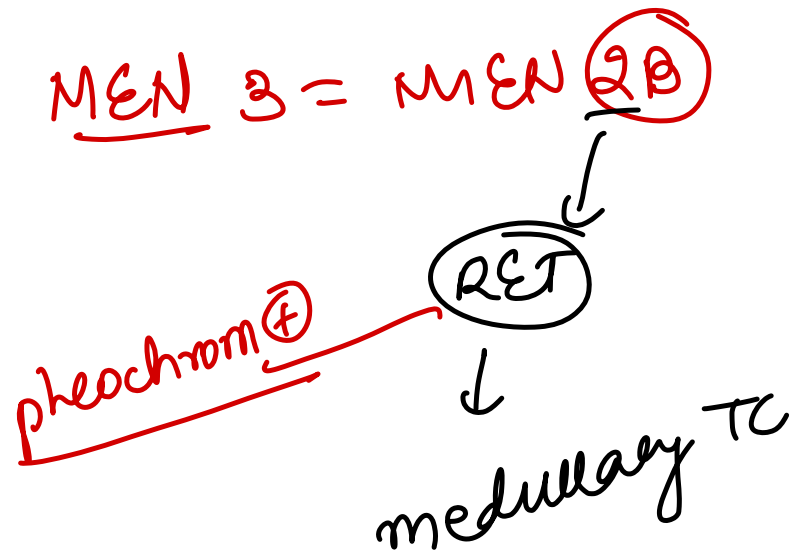 MEN 3 = MEN 2B
RET
pheochrom +
medullary TC